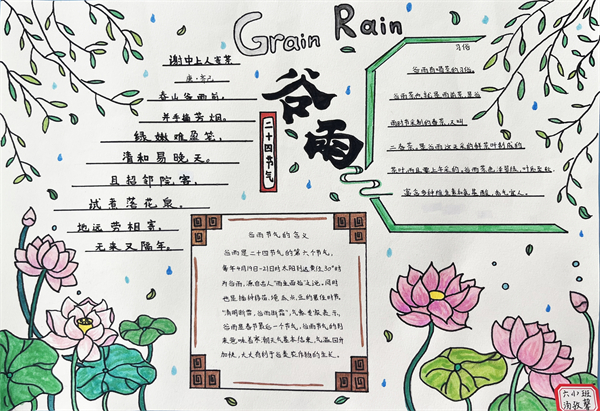 Grain Rain
谷雨
二十四节气
谢中上人寄茶
唐·齐己
春山谷雨前，
并手摘芳烟。
绿嫩难盈笼，
清和易晚天。
且招邻院客，
试煮落花泉。
地远劳相寄，
无来又隔年。
习俗
谷雨有喝茶的习俗。
谷雨茶也就是雨前茶，是谷
雨时节采制的春茶，又叫
二春茶。
谷雨节气的含义
谷雨是二十四节气的第六个节气，
每年4月19日-21日时太阳到达黄经30°时
为谷雨，源自古人“雨生百谷”之说。同时
也是播种移苗、埯瓜点豆的最佳时节
“清明断雪，谷雨断霜”，气象专家表示，
谷雨是春节最后一个节气，谷雨节气的到
来意味着寒潮天气基本结束，气温回升
加快，大大有利于谷类农作物的生长。